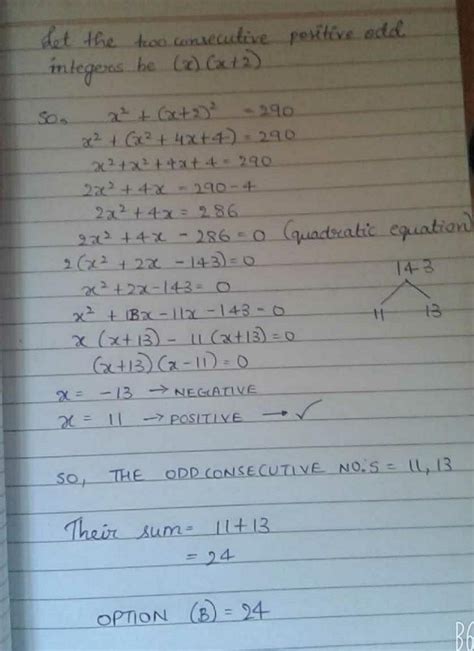 Let the two consecutive positive odd
integers be (x) (x+2)
so, x² + (x+2)² = 290
x² + (x² + 4x + 4) = 290
x² + x² + 4x + 4 = 290
2x² + 4x = 290 - 4
2x² + 4x = 286
2x² + 4x - 286 = 0 (quadratic equation)
2(x² + 2x - 143) = 0
143
x² + 2x - 143 = 0
11 13
x² + 13x - 11x - 143 = 0
x (x+13) - 11 (x+13) = 0
(x+13) (x-11) = 0
x = -13 → NEGATIVE
x = 11 → POSITIVE → ✓
SO, THE ODD CONSECUTIVE NO:S = 11, 13
Their sum = 11+13
= 24
OPTION (B) = 24